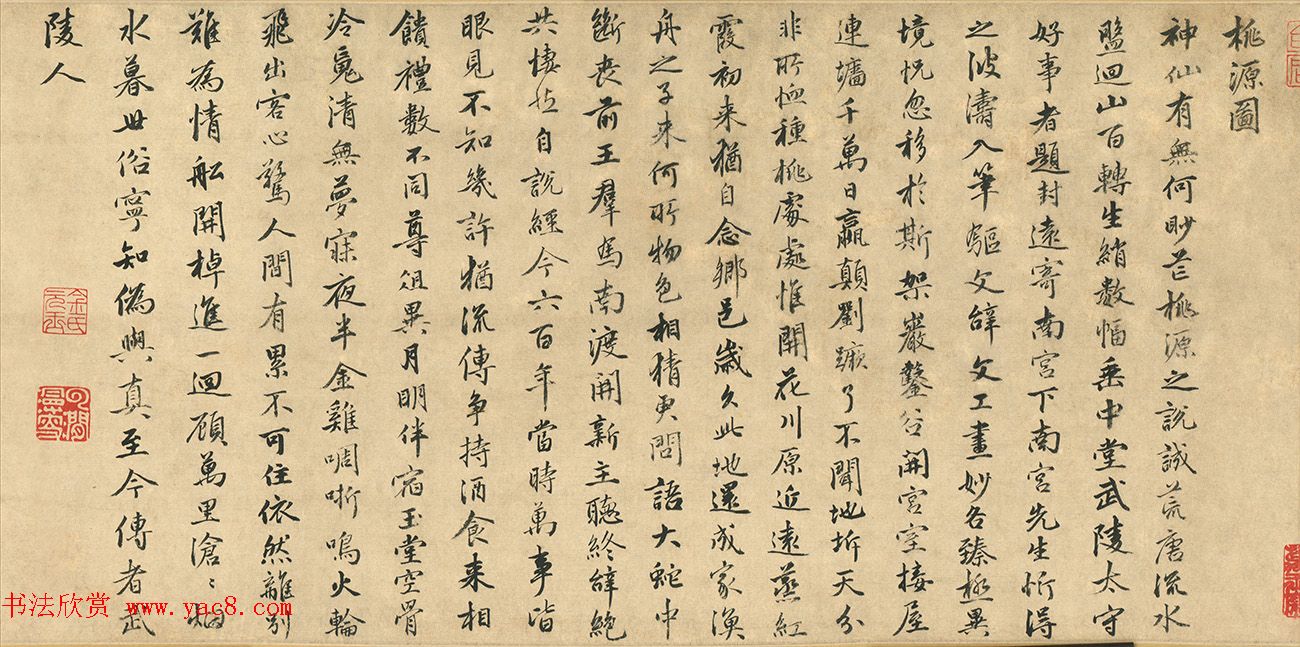 桃源圖
神仙有無何眇芒桃源之説誠荒唐流水
盤迴山百轉生綃數幅垂中堂武陵太守
好事者題封遠寄南宮下南宮先生忻得
之波濤入筆驅文辭文工畫妙各臻極異
境怳忽移於斯架巖鑿谷開宮室接屋
連墻千萬日嬴顛劉蹶了不聞地坼天分
非所恤種桃處處惟開花川原近遠蒸紅
霞初来猶自念鄉邑歲久此地還成家漁
舟之子来何所物色相猜更問語大蛇中
斷喪前王羣馬南渡開新主聽終辭絶
共悽然自説經今六百年當時萬事皆
眼見不知幾許猶流傳爭持酒食来相
饋禮數不同尊俎異月明伴宿玉堂空骨
冷䰟清無夢寐夜半金雞啁哳鳴火輪
飛出客心驚人間有累不可住依然離别
難為情船開棹進一迴顧萬里滄〻烟
水暮世俗寧知偽與真至今傳者武
陵人
金氏元玉
书法欣赏 www.yac8.com